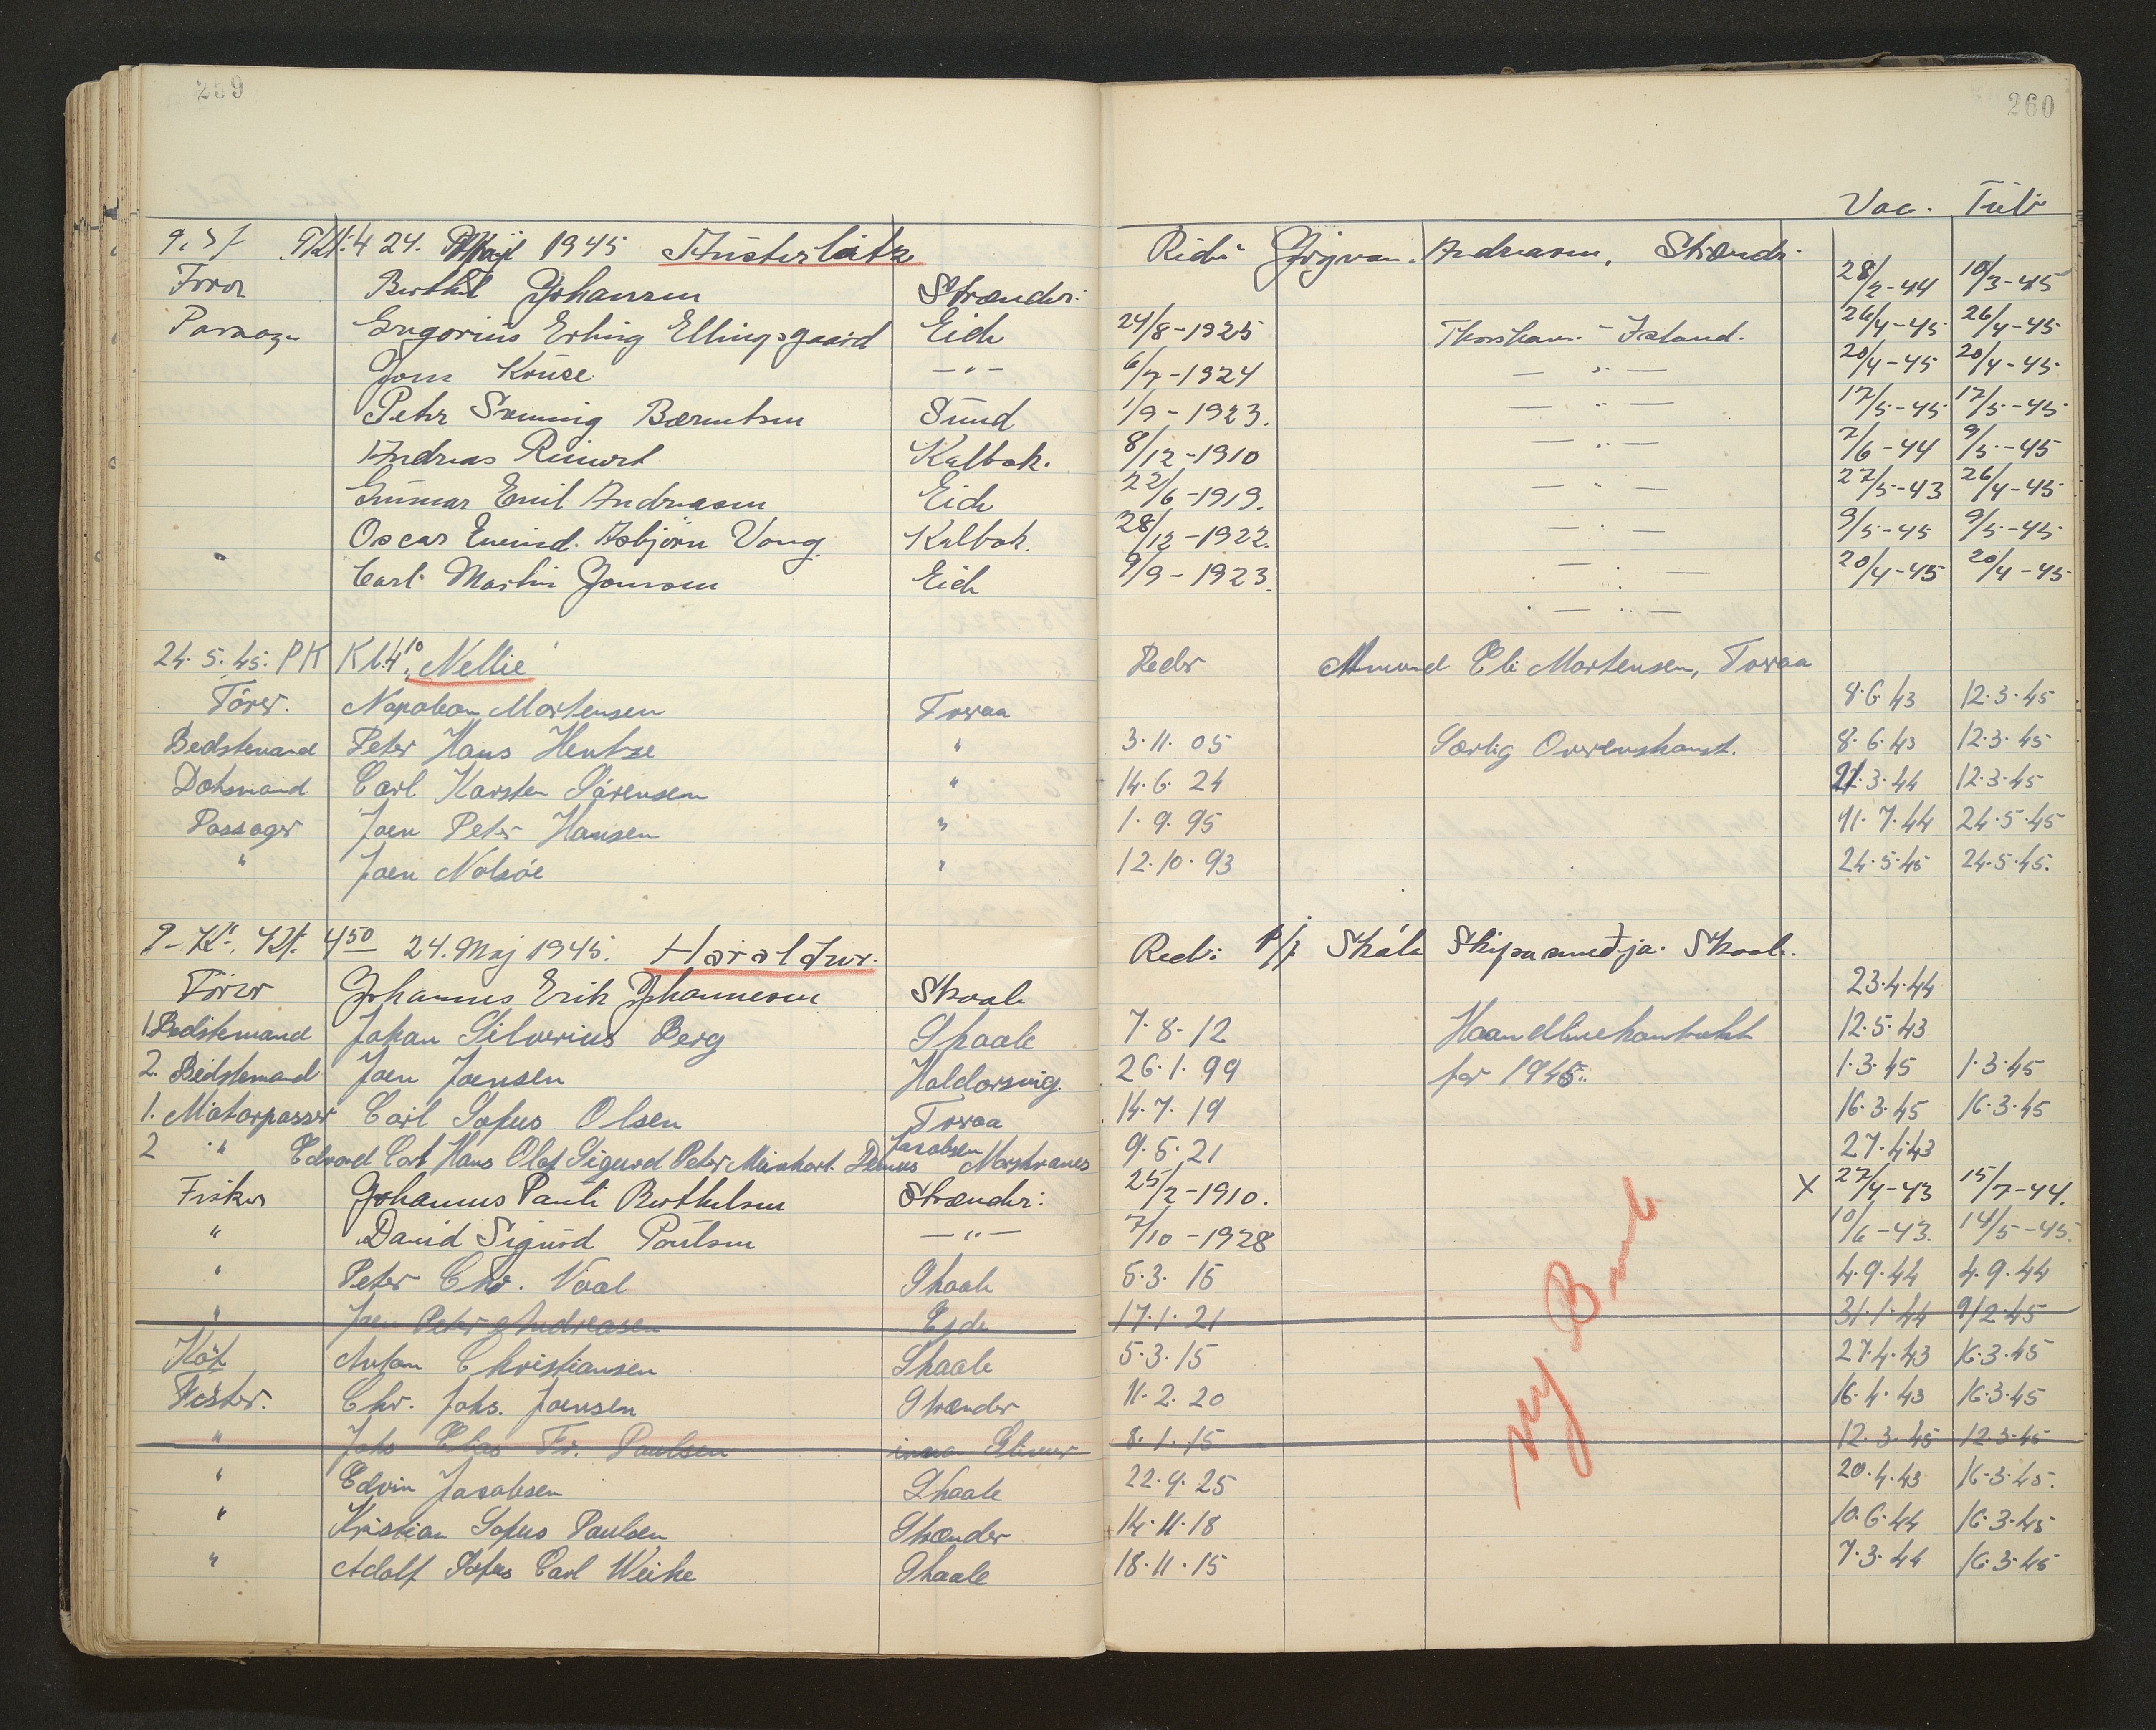 259
260
Vac. Tub
24. Maj 1945 Austerlitz Redr Andreasen, Strændr
Fører Berthil Johansen Strænder 28/2-44 10/3-45
Passager Gregorius Erling Ellingsgaard Eide 24/8-1925 Thorshavn - Island. 26/4-45 26/4-45
Jorn Kruse —"— 6/7-1924 —"— 20/4-45 20/4-45
Peter Bærentsen Sund 1/9-1923. —"— 17/5-45 17/5-45
Andreas Reinert Kalbak. 8/12-1910 —"— 7/6-44 9/5-45
Gunnar Emil Andreasen Eide 22/6-1919. —"— 27/5-43 26/4-45
Oscar Asbjörn Vang Kalbak. 28/12-1922. —"— 9/5-45 9/5-45
" Carl Martin Joensen Eide 9/9-1923. —"— 20/4-45 20/4-45
—"—
24.5.45. PK Kl. 4.10 "Nellie" Reder Amund Eli Mortensen, Tvøraa
Fører. Napoleon Mortensen Tvøraa 8.6.43 12.3.45
Bedstemand Peter Hans Hentze " 3.11.05 Særlig Overenskomst. 8.6.43 12.3.45
Doksmand Carl Karsten Sørensen " 14.6.24 3.44 12.3.45
Passager Joen Peter Hansen " 1.9.95 11.7.44 24.5.45
" Joen Nolsøe " 12.10.93 24.5.45 24.5.45.
Kl. 4.50 24. Maj 1945. Haraldur. Redr: P/f Skála Skipasmedja. Skaale.
Fører Johannes Erik Johannesen Skaale 23.4.44
1. Bedstemand Johan Silverius Berg Skaale 7.8.12 Haandlinekontrakt 12.5.43
2. Bedstemand Joen Joensen Haldorsvig. 26.1.99 for 1945. 1.3.45 1.3.45
1. Motorpasser Carl Sofus Olsen Tvøraa 14.7.19 16.3.45 16.3.45
2 " Edvard Carl Hans Olaf Sigurd Peter Meinhart Jacobsen Morskranes 9.5.21 27.4.43
Fisker Johannes Pauli Berthelsen Strænder: 25/2-1910. X 27/4-43 15/7-44.
" David Sigurd Poulsen —"— 7/10-1928 10/6-43. 14/5-45.
" Peter Chr. Vaal Skaale 5.3.15 4.9.44 4.9.44
" Joen Peter Andreasen Ejde 17.1.21 31.1.44 9/2-45
Kok Anton Christiansen Skaale 5.3.15 27.4.43 16.3.45
Fisker. Chr. Johs. Joensen Strænder 11.2.20 16.4.43 16.3.45
" Johs Elias Fr. Paulsen Glivur 8.1.15 12.3.45 12.3.45
" Edvin Jacobsen Skaale 22.9.25 20.4.43 16.3.45.
" Kristian Sofus Paulsen Strænder 14.11.18 10.6.44 16.3.45
" Adolf Sofus Carl Weihe Skaale 18.11.15 7.3.44 16.3.45
ny